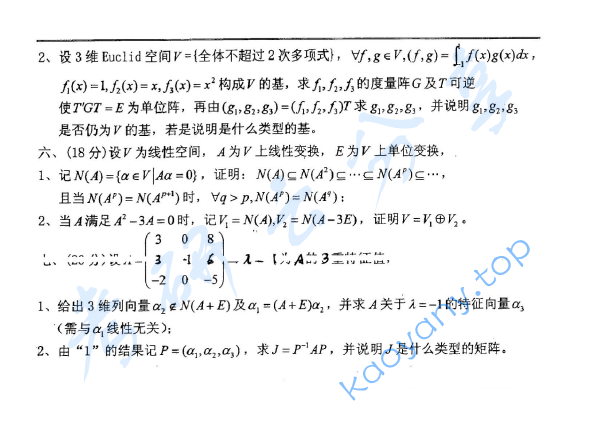 2、设3维Euclid空间V={全体不超过2次多项式}，∀f,g∈V,(f,g)=∫₋₁¹f(x)g(x)dx，
f₁(x)=1,f₂(x)=x,f₃(x)=x²构成V的基，求f₁,f₂,f₃的度量阵G及T可逆
使T'GT=E为单位阵，再由(g₁,g₂,g₃)=(f₁,f₂,f₃)T求g₁,g₂,g₃，并说明g₁,g₂,g₃
是否仍为V的基，若是说明是什么类型的基。
六、(18分)设V为线性空间，A为V上线性变换，E为V上单位变换，
1、记N(A)={α∈V|Aα=0}，证明：N(A)⊆N(A²)⊆⋯⊆N(Aᵖ)⊆⋯，
且当N(Aᵖ)=N(Aᵖ⁺¹)时，∀q>p,N(Aᵖ)=N(A^q)；
2、当A满足A²-3A=0时，记V₁=N(A),V₂=N(A-3E)，证明V=V₁⊕V₂。
3 0 8
七、(20分)设A= 3 -1 6 λ=-1为A的3重特征值，
-2 0 -5
1、给出3维列向量α₂∉N(A+E)及α₁=(A+E)α₂，并求A关于λ=-1的特征向量α₃
（需与α₁线性无关）；
2、由“1”的结果记P=(α₁,α₂,α₃)，求J=P⁻¹AP，并说明J是什么类型的矩阵。
kaoyany.top